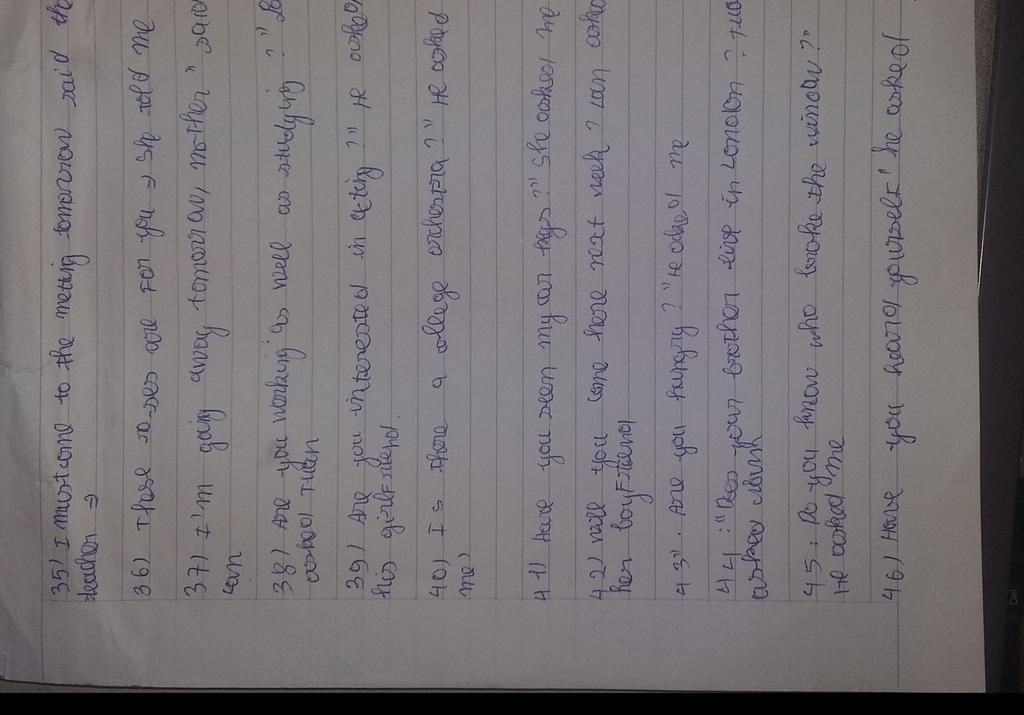 35) I must come to the meeting tomorrow said the
teacher ⇒
36) These roses are for you → she told me
37) I'm going away tomorrow, mother" said
Ian
38) Are you working as well as studying?"
asked Tuan
39) Are you interested in acting?" He asked
his girlfriend.
40) Is there a college orchestra?" He asked
me)
41) Have you seem my car keys?" she asked me
42) will you come here next week? Ian asked
her boyfriend
43". Are you hungry?" He asked me
44: "Does your brother live in London?
asked
45: Do you know who broke the window?"
He asked me
46) Have you heard yourself" he asked
Del